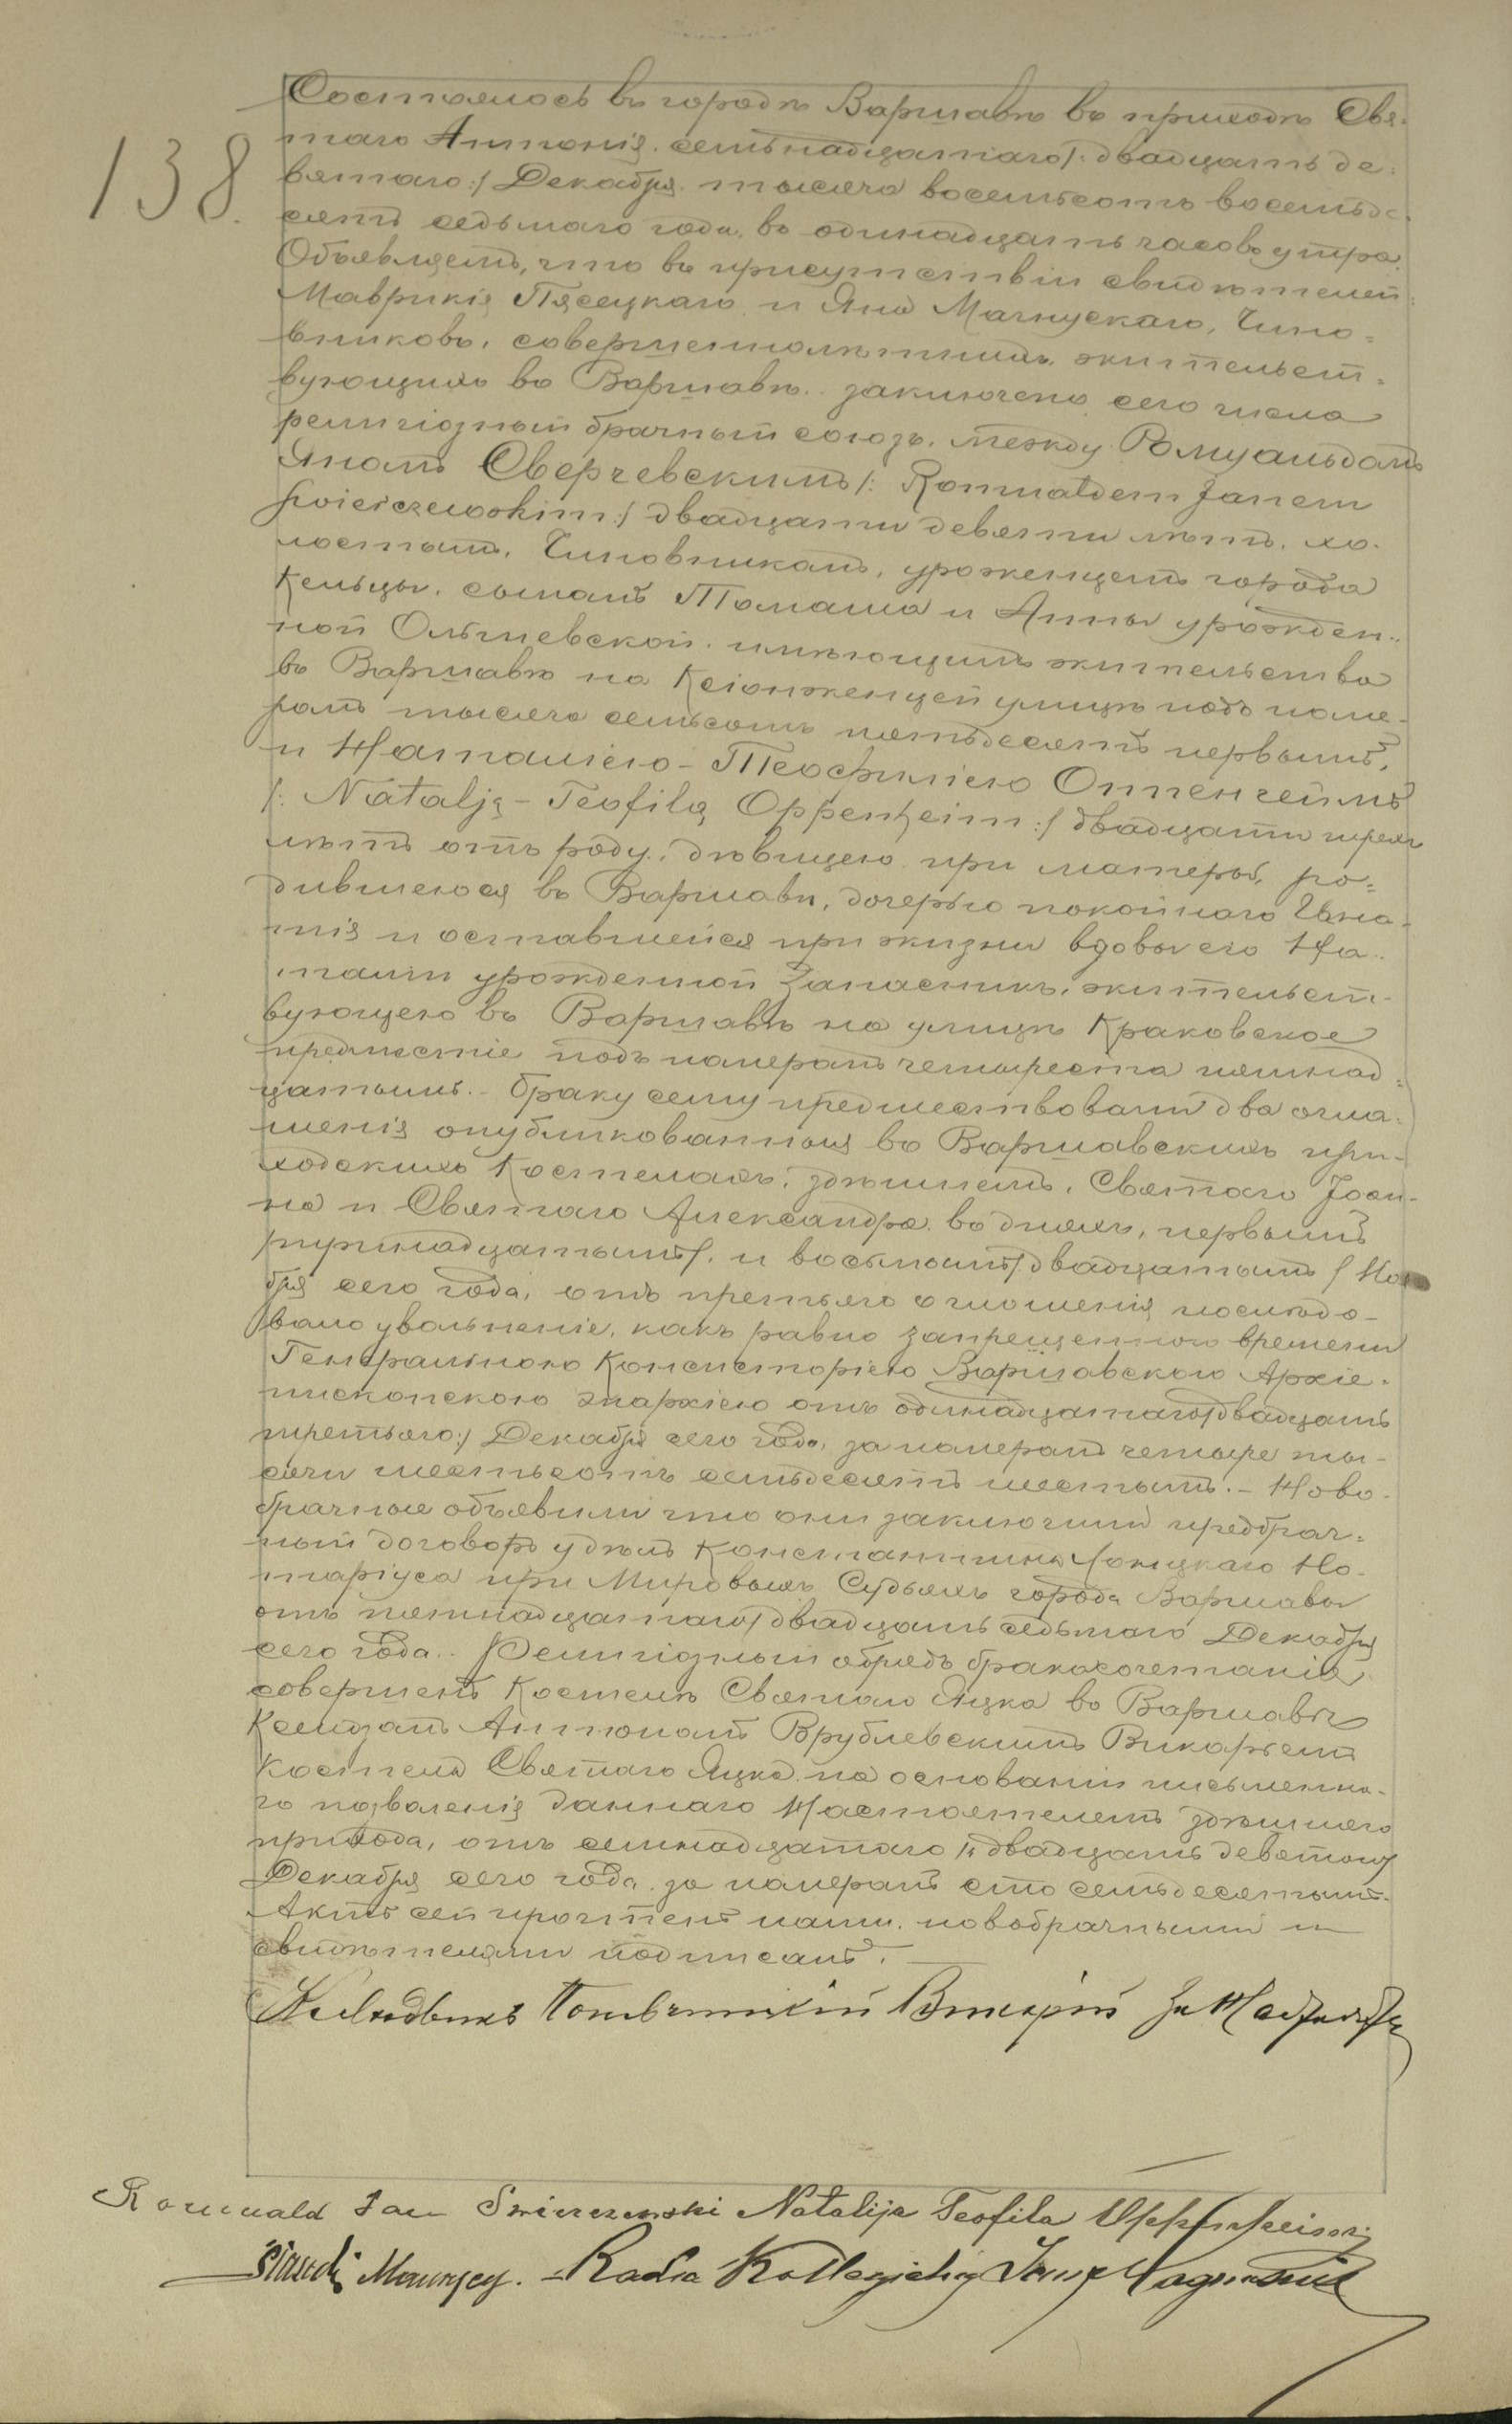 138.
Состоялось въ городѣ Варшавѣ въ приходѣ Свя-
таго Антонія. семьнадцатаго /: двадцать де-
вятаго :/ Декабря. тысяча восемьсотъ восемьде-
сятъ седьмаго года. въ одинадцать часовъ утра.
Объявляемъ, что въ присутствіи свидѣтелей:
Маврикія Пясецкаго и Яна Магнускаго, Чино-
вниковъ, совершеннолѣтнихъ, жительст-
вующихъ въ Варшавѣ.. заключенъ сего числа
религіозный брачный союзъ, между Ромуальдомъ
Яномъ Сверчевскимъ /: Romualdem Janem
Świerczewskim :/ двадцати девяти лѣтъ, хо-
лостымъ, Чиновникомъ, уроженцемъ города
Кельцы, сыномъ Томаша и Анны урожден-
ной Ольшевской. имѣющимъ жительство
въ Варшавѣ на Ксіонженцей улицѣ подъ номе-
ромъ тысяча семьсотъ пятьдесятъ первымъ,
и Наталіею-Теофиліею Оппенгеймъ
/: Natalją-Teofilą Oppenheim :/ двадцати трехъ
лѣтъ отъ роду, дѣвицею при матери, ро-
дившеюся въ Варшавѣ, дочерью покойнаго Игна-
тія и оставшейся при жизни вдовы его На-
таліи урожденной Запасникъ, жительст-
вующею въ Варшавѣ на улицѣ Краковское
предмѣстіе подъ номеромъ четыреста пятнад-
цатымъ.- браку сему предшествовали два огла-
шенія опубликованныя въ Варшавскихъ при-
ходскихъ Костелахъ, здѣшнемъ, Святаго Іоан-
на и Святаго Александра. въ дняхъ, первымъ
/тринадцатымъ/. и восьмымъ /двадцатымъ/ Ноя-
бря сего года, отъ третьяго оглошенія послѣдо-
вало увольненіе, какъ равно запрещеннаго времени
Генеральною Консисторіею Варшавскою Архіе-
пископскою эпархіею отъ одинадцатаго /двадцать
третьяго :/ Декабря сего года, за номеромъ четыре ты-
сячи шестьсотъ семьдесятъ шестымъ.- Ново-
брачные объявили что они заключили предбрач-
ный договоръ у дѣлъ Константина Но-
таріуса при Мировыхъ Судьяхъ города Варшавы
отъ пятнадцатаго /двадцать седьмаго Декабря
сего года.. Религіозный обрядъ бракосочетанія
совершенъ Костелѣ Святаго Яцка въ Варшавѣ
Ксендзомъ Антономъ Врублевскимъ Викаріемъ
Костела Святаго Яцка. на основаніи письменна-
го позволенія даннаго Настоятелемъ здѣшняго
прихода, отъ семнадцатаго /: двадцать девятаго/
Декабря сего года. за номеромъ сто семьдесятымъ.
Актъ сей прочтенъ нами. новобрачными и
свидѣтелями подписанъ.
Викарій
Romuald Jan Świerczewski Natalija Teofila Oppenheim
Maurycy. Radca Kollegialny Magnuski